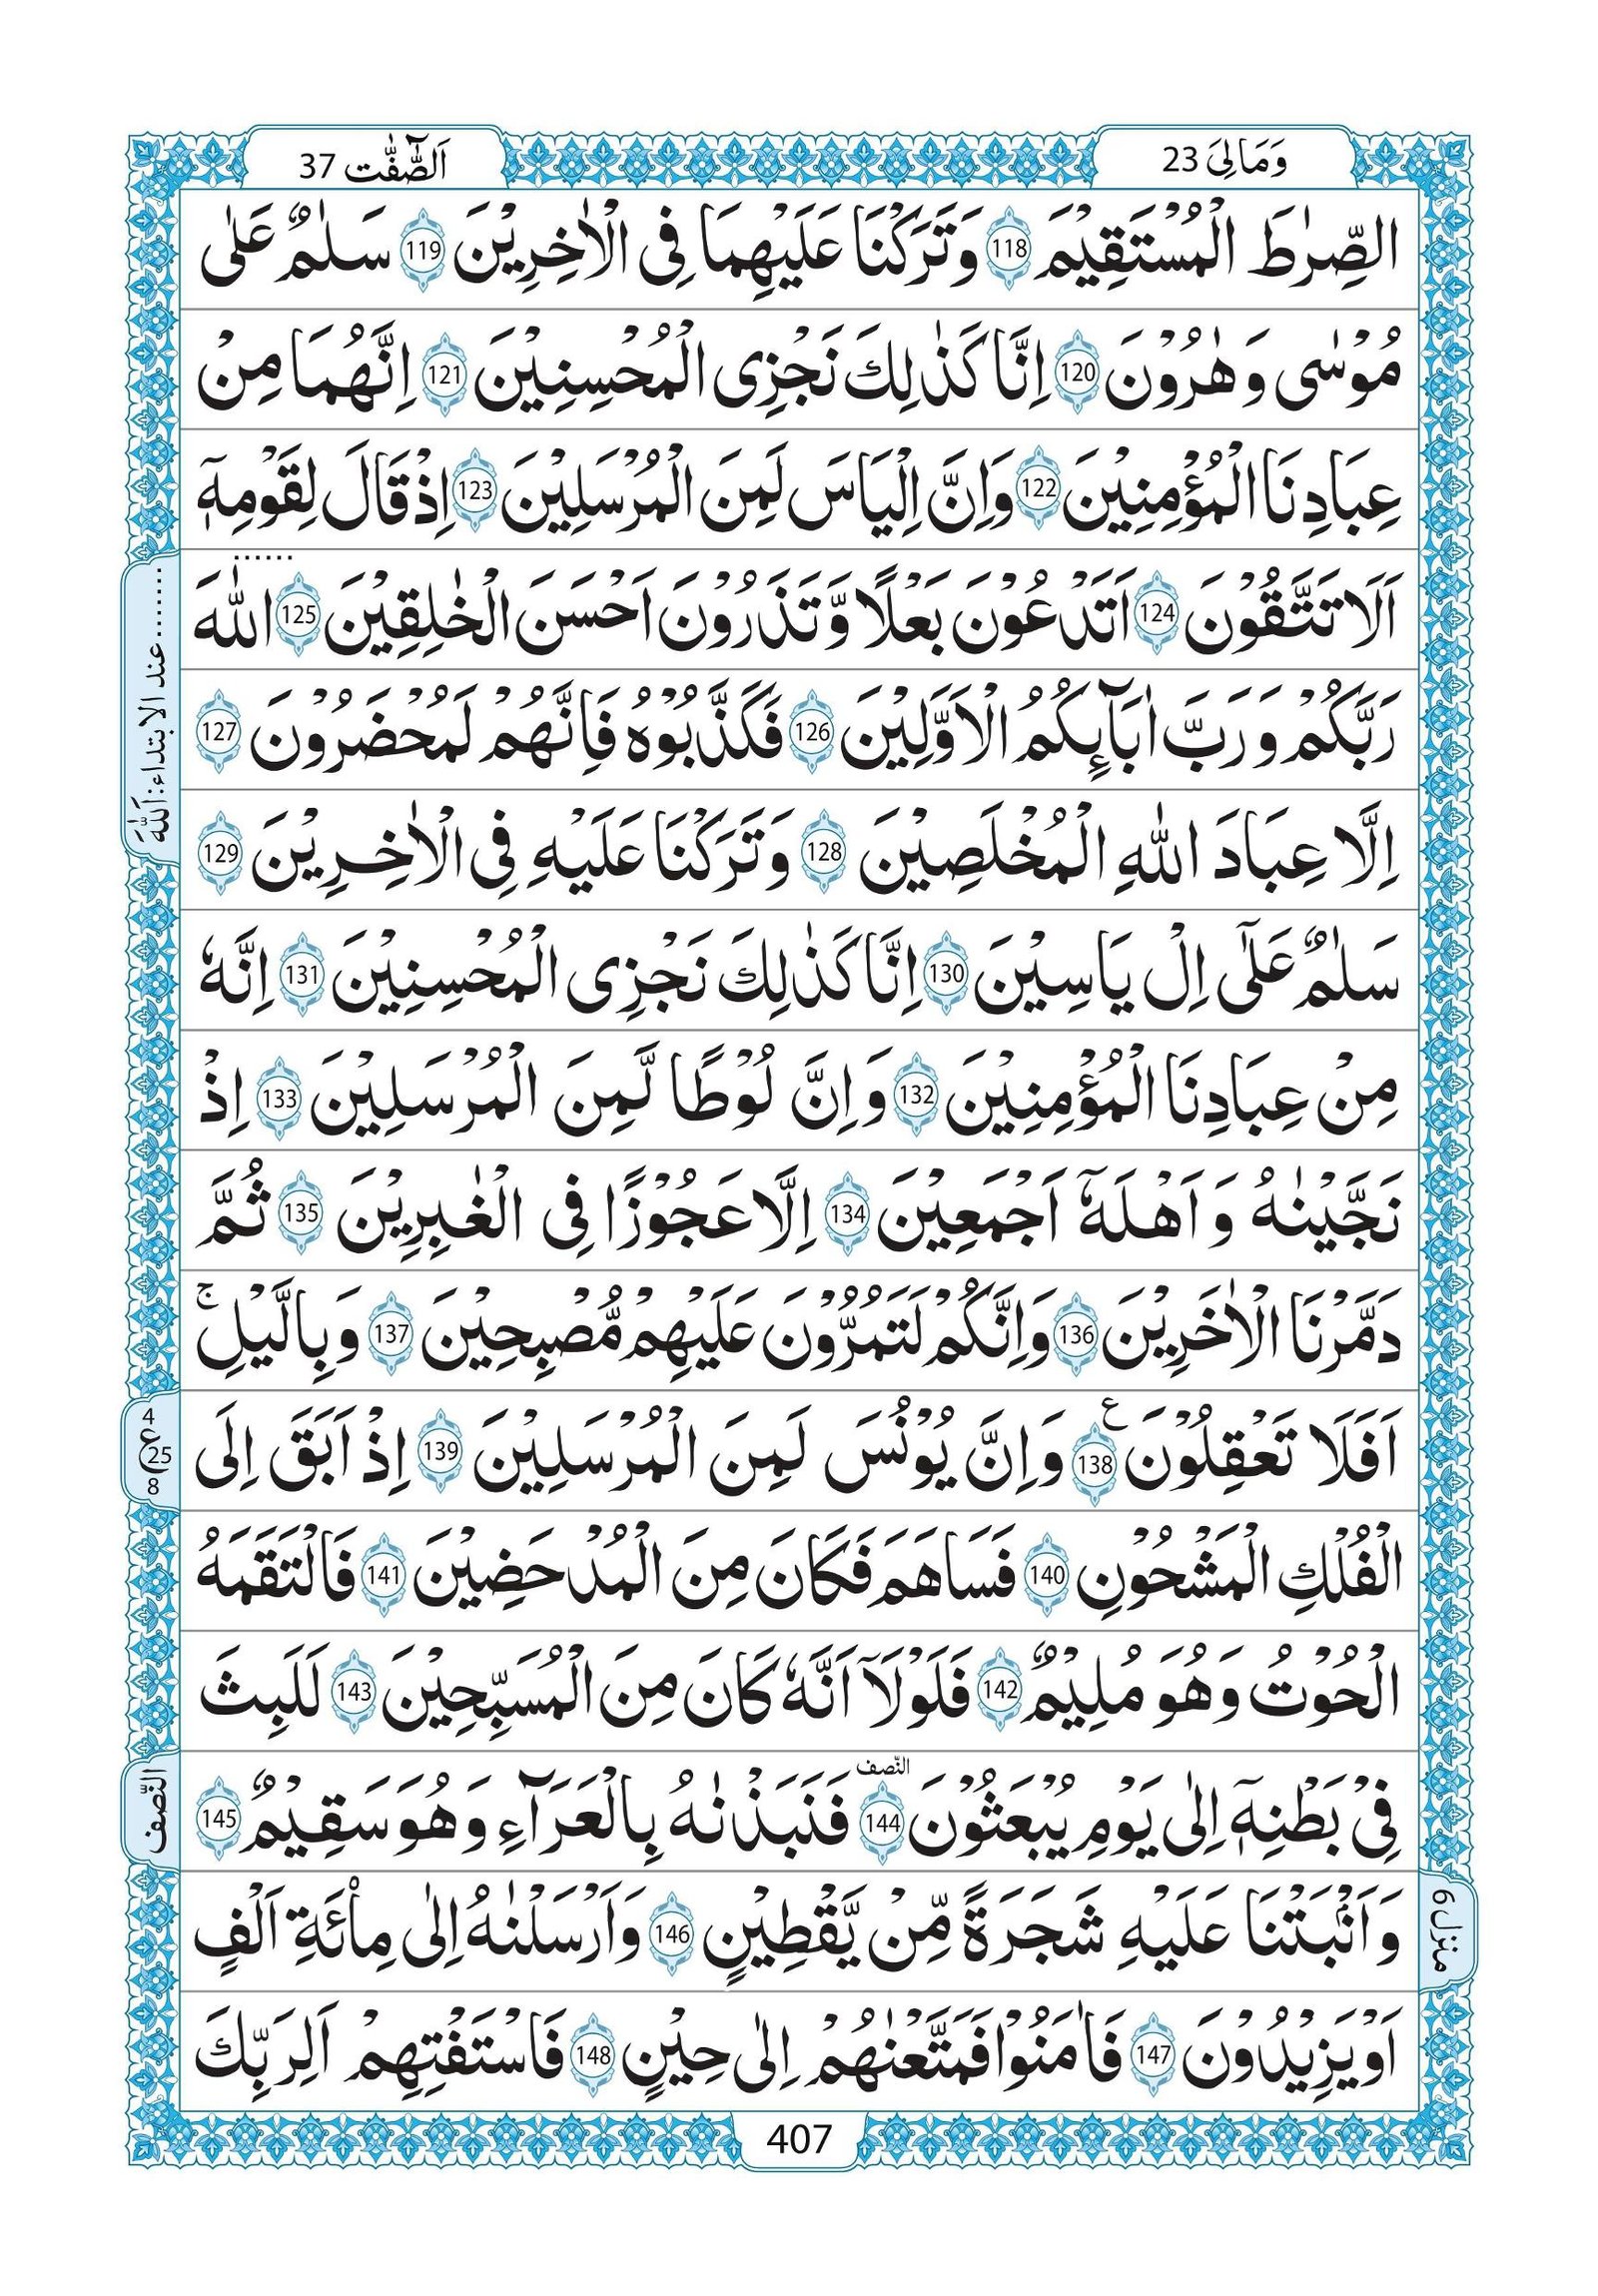 وَمَالِیَ 23
اَلصّٰٓفّٰت 37
الصِّرٰطَ الْمُسْتَقِیْمَ 118 وَتَرَكْنَا عَلَیْهِمَا فِی الْاٰخِرِیْنَ 119 سَلٰمٌ عَلٰی
مُوْسٰی وَهٰرُوْنَ 120 اِنَّا كَذٰلِكَ نَجْزِی الْمُحْسِنِیْنَ 121 اِنَّهُمَا مِنْ
عِبَادِنَا الْمُؤْمِنِیْنَ 122 وَاِنَّ اِلْیَاسَ لَمِنَ الْمُرْسَلِیْنَ 123 اِذْ قَالَ لِقَوْمِهٖۤ
اَلَا تَتَّقُوْنَ 124 اَتَدْعُوْنَ بَعْلًا وَّتَذَرُوْنَ اَحْسَنَ الْخٰلِقِیْنَ 125 اللّٰهَ
رَبَّكُمْ وَرَبَّ اٰبَآىِٕكُمُ الْاَوَّلِیْنَ 126 فَكَذَّبُوْهُ فَاِنَّهُمْ لَمُحْضَرُوْنَ 127
اِلَّا عِبَادَ اللّٰهِ الْمُخْلَصِیْنَ 128 وَتَرَكْنَا عَلَیْهِ فِی الْاٰخِرِیْنَ 129
سَلٰمٌ عَلٰۤی اِلْ یَاسِیْنَ 130 اِنَّا كَذٰلِكَ نَجْزِی الْمُحْسِنِیْنَ 131 اِنَّهٗ
مِنْ عِبَادِنَا الْمُؤْمِنِیْنَ 132 وَاِنَّ لُوْطًا لَّمِنَ الْمُرْسَلِیْنَ 133 اِذْ
نَجَّیْنٰهُ وَاَهْلَهٗۤ اَجْمَعِیْنَ 134 اِلَّا عَجُوْزًا فِی الْغٰبِرِیْنَ 135 ثُمَّ
دَمَّرْنَا الْاٰخَرِیْنَ 136 وَاِنَّكُمْ لَتَمُرُّوْنَ عَلَیْهِمْ مُّصْبِحِیْنَ 137 وَبِالَّیْلِ ۚ
اَفَلَا تَعْقِلُوْنَ ع 138 وَاِنَّ یُوْنُسَ لَمِنَ الْمُرْسَلِیْنَ 139 اِذْ اَبَقَ اِلَی
الْفُلْكِ الْمَشْحُوْنِ 140 فَسَاهَمَ فَكَانَ مِنَ الْمُدْحَضِیْنَ 141 فَالْتَقَمَهُ
الْحُوْتُ وَهُوَ مُلِیْمٌ 142 فَلَوْلَاۤ اَنَّهٗ كَانَ مِنَ الْمُسَبِّحِیْنَ 143 لَلَبِثَ
فِیْ بَطْنِهٖۤ اِلٰی یَوْمِ یُبْعَثُوْنَ النّصف 144 فَنَبَذْنٰهُ بِالْعَرَآءِ وَهُوَ سَقِیْمٌ 145
وَاَنْۢبَتْنَا عَلَیْهِ شَجَرَةً مِّنْ یَّقْطِیْنٍ 146 وَاَرْسَلْنٰهُ اِلٰی مِائَةِ اَلْفٍ
اَوْ یَزِیْدُوْنَ 147 فَاٰمَنُوْا فَمَتَّعْنٰهُمْ اِلٰی حِیْنٍ 148 فَاسْتَفْتِهِمْ اَلِرَبِّكَ
......عند الابتداء: اَللّٰهَ
4
ع 25
8
النّصف
منزل 6
407